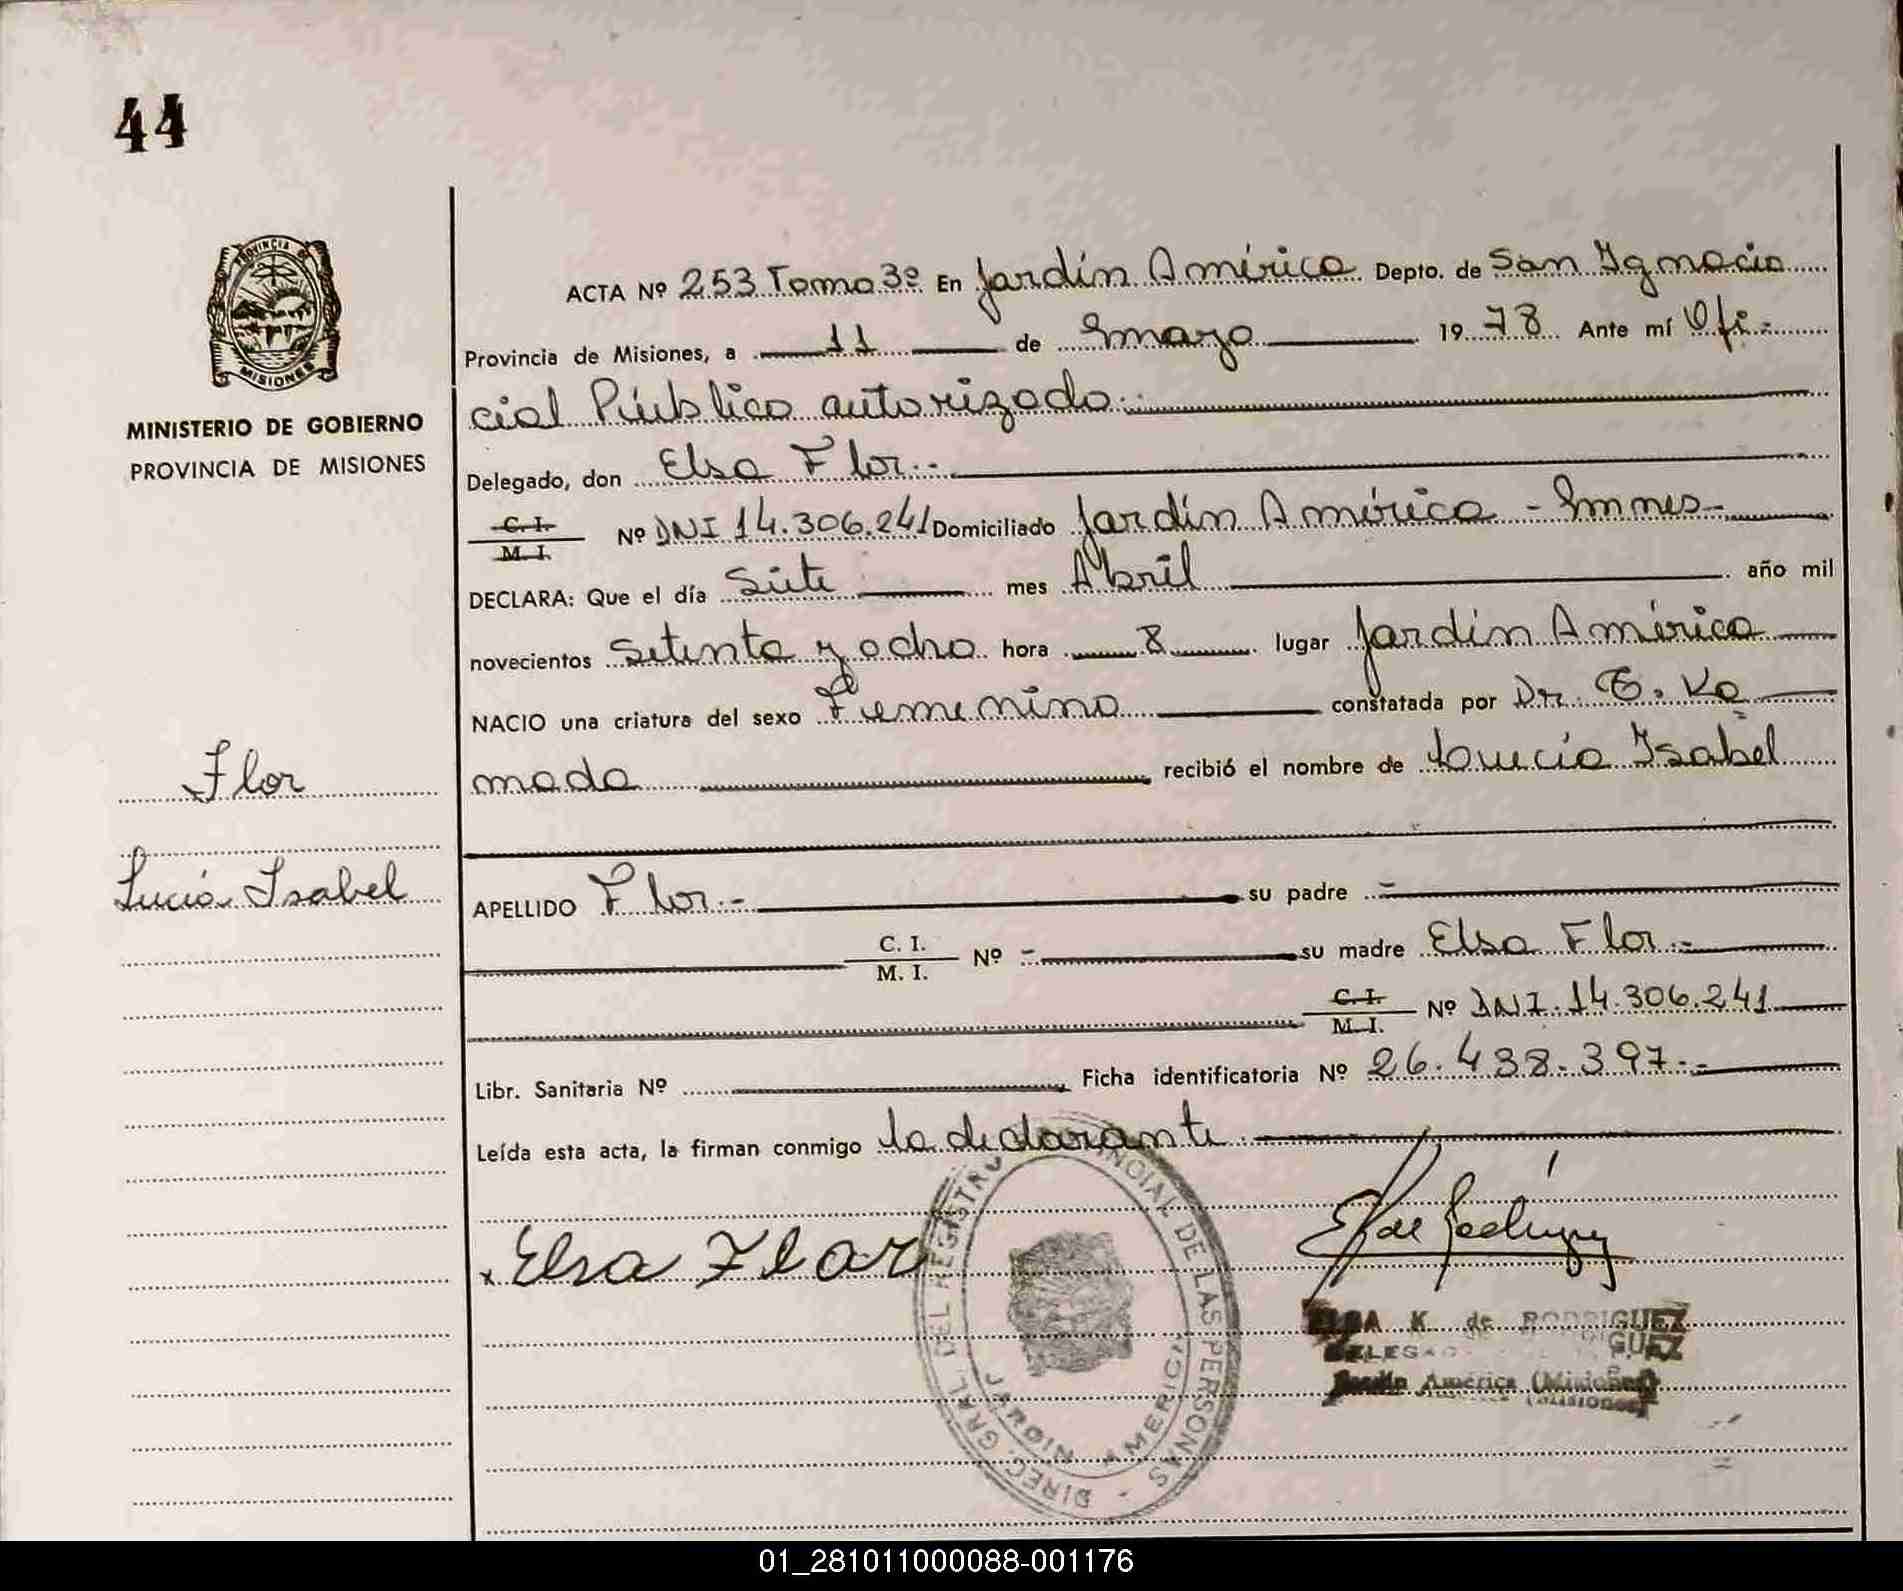 44
PROVINCIA D
MISIONES
MINISTERIO DE GOBIERNO
PROVINCIA DE MISIONES
Flor
Lucía Isabel
ACTA Nº 253 Tomo 3º En Jardín América Depto. de San Ignacio
Provincia de Misiones, a 11 de mayo 1978 Ante mí Ofi-
cial Público autorizado
Delegado, don Elsa Flor.-
C. I.
M. I. Nº DNI 14.306.241 Domiciliado Jardín América - Mnes-
DECLARA: Que el día Siete mes Abril año mil
novecientos Setenta y ocho hora 8 lugar Jardín América
NACIO una criatura del sexo Femenino constatada por Dr. E. Ka
mada recibió el nombre de Lucía Isabel
APELLIDO Flor.- su padre -
C. I.
M. I. Nº - su madre Elsa Flor.-
C. I.
M. I. Nº DNI. 14.306.241
Libr. Sanitaria Nº Ficha identificatoria Nº 26.438.397.-
Leída esta acta, la firman conmigo la declarante.
x Elsa Flor
DIREC. GRAL. DEL REGISTRO PROVINCIAL DE LAS PERSONAS -
JARDIN AMERICA
ELSA K. de RODRIGUEZ
Jardín América (Misiones)
01_281011000088-001176